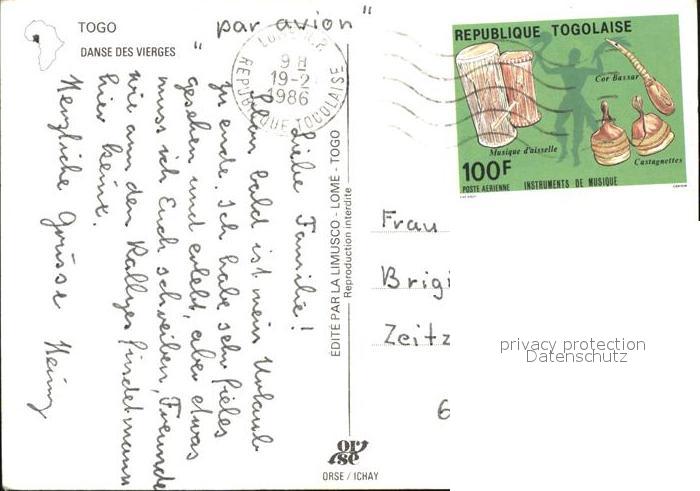 TOGO
DANSE DES VIERGES
"par avion"
LOME R.P.
9 H
19-2
1986
REPUBLIQUE TOGOLAISE
REPUBLIQUE TOGOLAISE
Cor Bassar
Musique d'aisselle
Castagnettes
100F
POSTE AERIENNE INSTRUMENTS DE MUSIQUE
Liebe Familie!
Schon bald ist mein Urlaub
zu ende. Ich habe sehr fieles
gesehen und erlebt, aber etwas
muss ich Euch schreiben, Freunde
wie an den Rallyes findet mann
hier keine.
Herzliche Grüsse Heinz
EDITE PAR LA LIMUSCO - LOME - TOGO
Reproduction interdite
Frau
Brigi
Zeitz
6
privacy protection
Datenschutz
or
se
ORSE / ICHAY